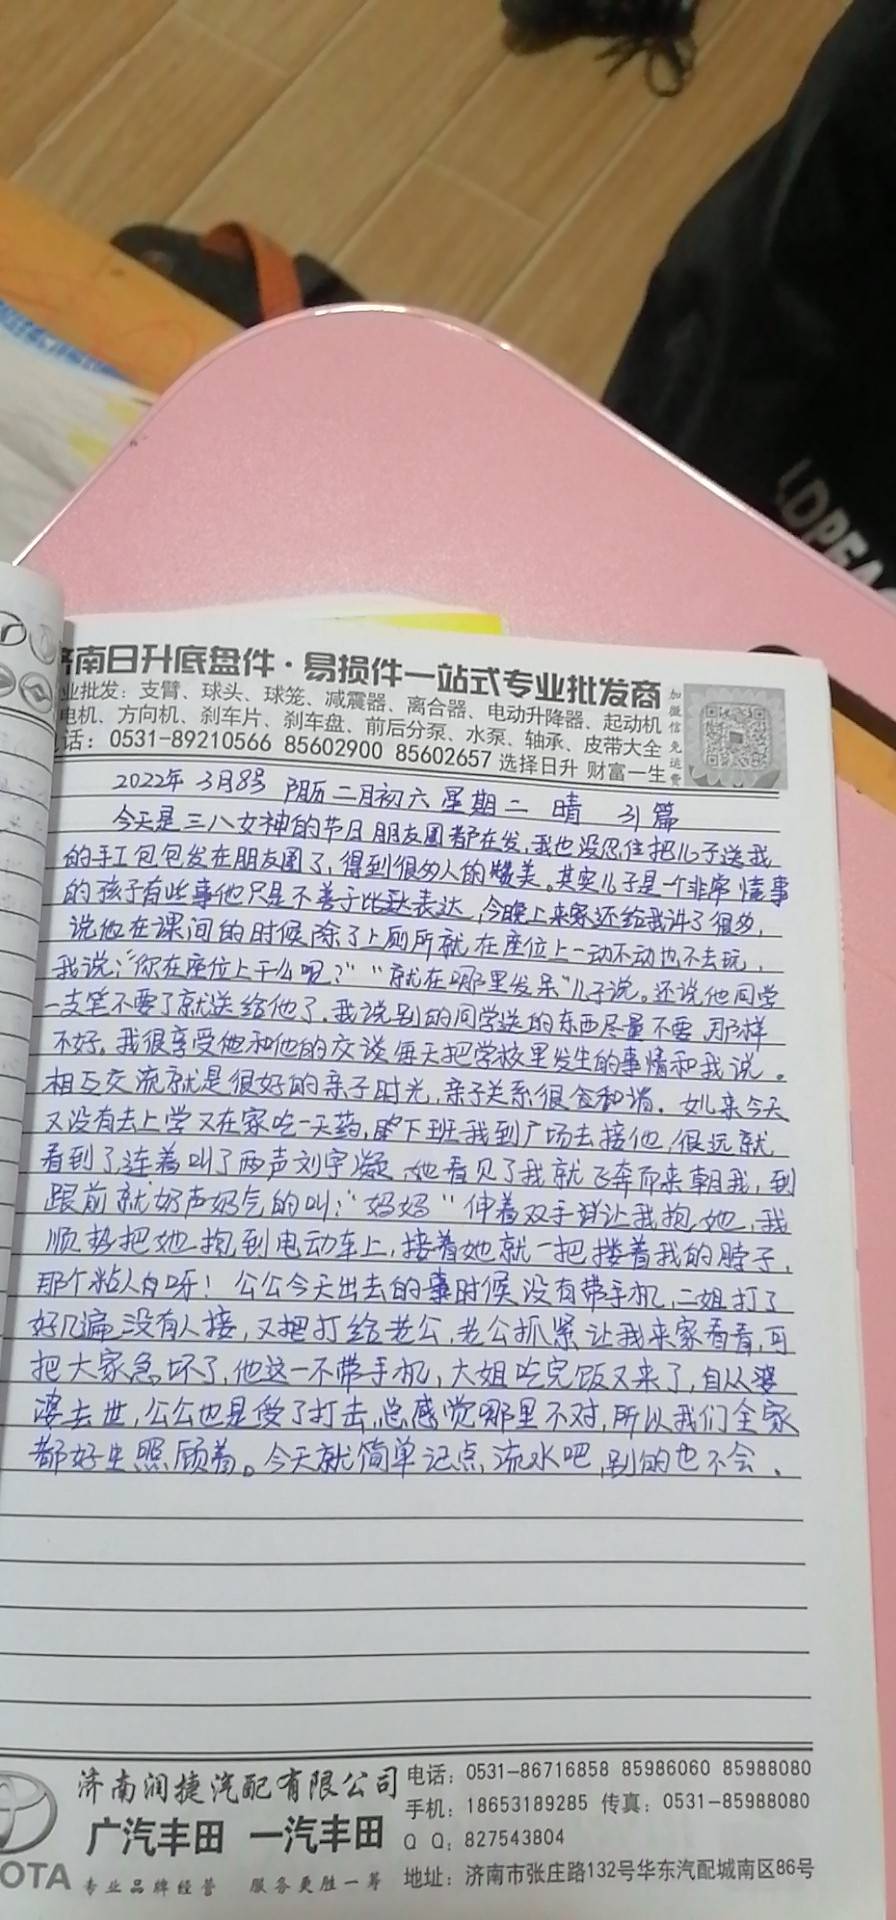 济南日升底盘件·易损件一站式专业批发商
业批发：支臂、球头、球笼、减震器、离合器、电动升降器、起动机
电机、方向机、刹车片、刹车盘、前后分泵、水泵、轴承、皮带大全
话：0531-89210566 85602900 85602657 选择日升 财富一生
加微信免运费
2022年 3月8号 阴历二月初六 星期二 晴 31篇
今天是三八女神的节日朋友圈都在发，我也没忍住把儿子送我
的手工包包发在朋友圈了，得到很多人的赞美。其实儿子是一个非常懂事
的孩子有些事他只是不善于表达，今晚上来家还给我讲了很多，
说他在课间的时候除了上厕所就在座位上一动不动也不去玩，
我说：“你在座位上干么呢？”“就在哪里发呆”儿子说。还说他同学
一支笔不要了就送给他了，我说别的同学送的东西尽量不要，那样
不好。我很享受他和他的交谈每天把学校里发生的事情和我说。
相互交流就是很好的亲子时光，亲子关系很食和谐。女儿来今天
又没有去上学又在家吃一天药，下班我到广场去接他，很远就
看到了连着叫了两声刘宇凝，她看见了我就飞奔而来朝我，到
跟前就奶声奶气的叫：“妈妈”伸着双手让我抱她，我
顺势把她抱到电动车上，接着她就一把搂着我的脖子，
那个粘人的呀！公公今天出去的事时候没有带手机，二姐打了
好几遍没有人接，又把打给老公，老公抓紧让我来家看看，可
把大家急坏了，他这一不带手机，大姐吃完饭又来了，自从婆
婆去世，公公也是受了打击，总感觉哪里不对，所以我们全家
都好生照顾着。今天就简单记点流水吧，别的也不会。
济南润捷汽配有限公司
广汽丰田 一汽丰田
OTA 专业品牌经营 服务更胜一筹
电话：0531-86716858 85986060 85988080
手机：18653189285 传真：0531-85988080
Q Q：827543804
地址：济南市张庄路132号华东汽配城南区86号